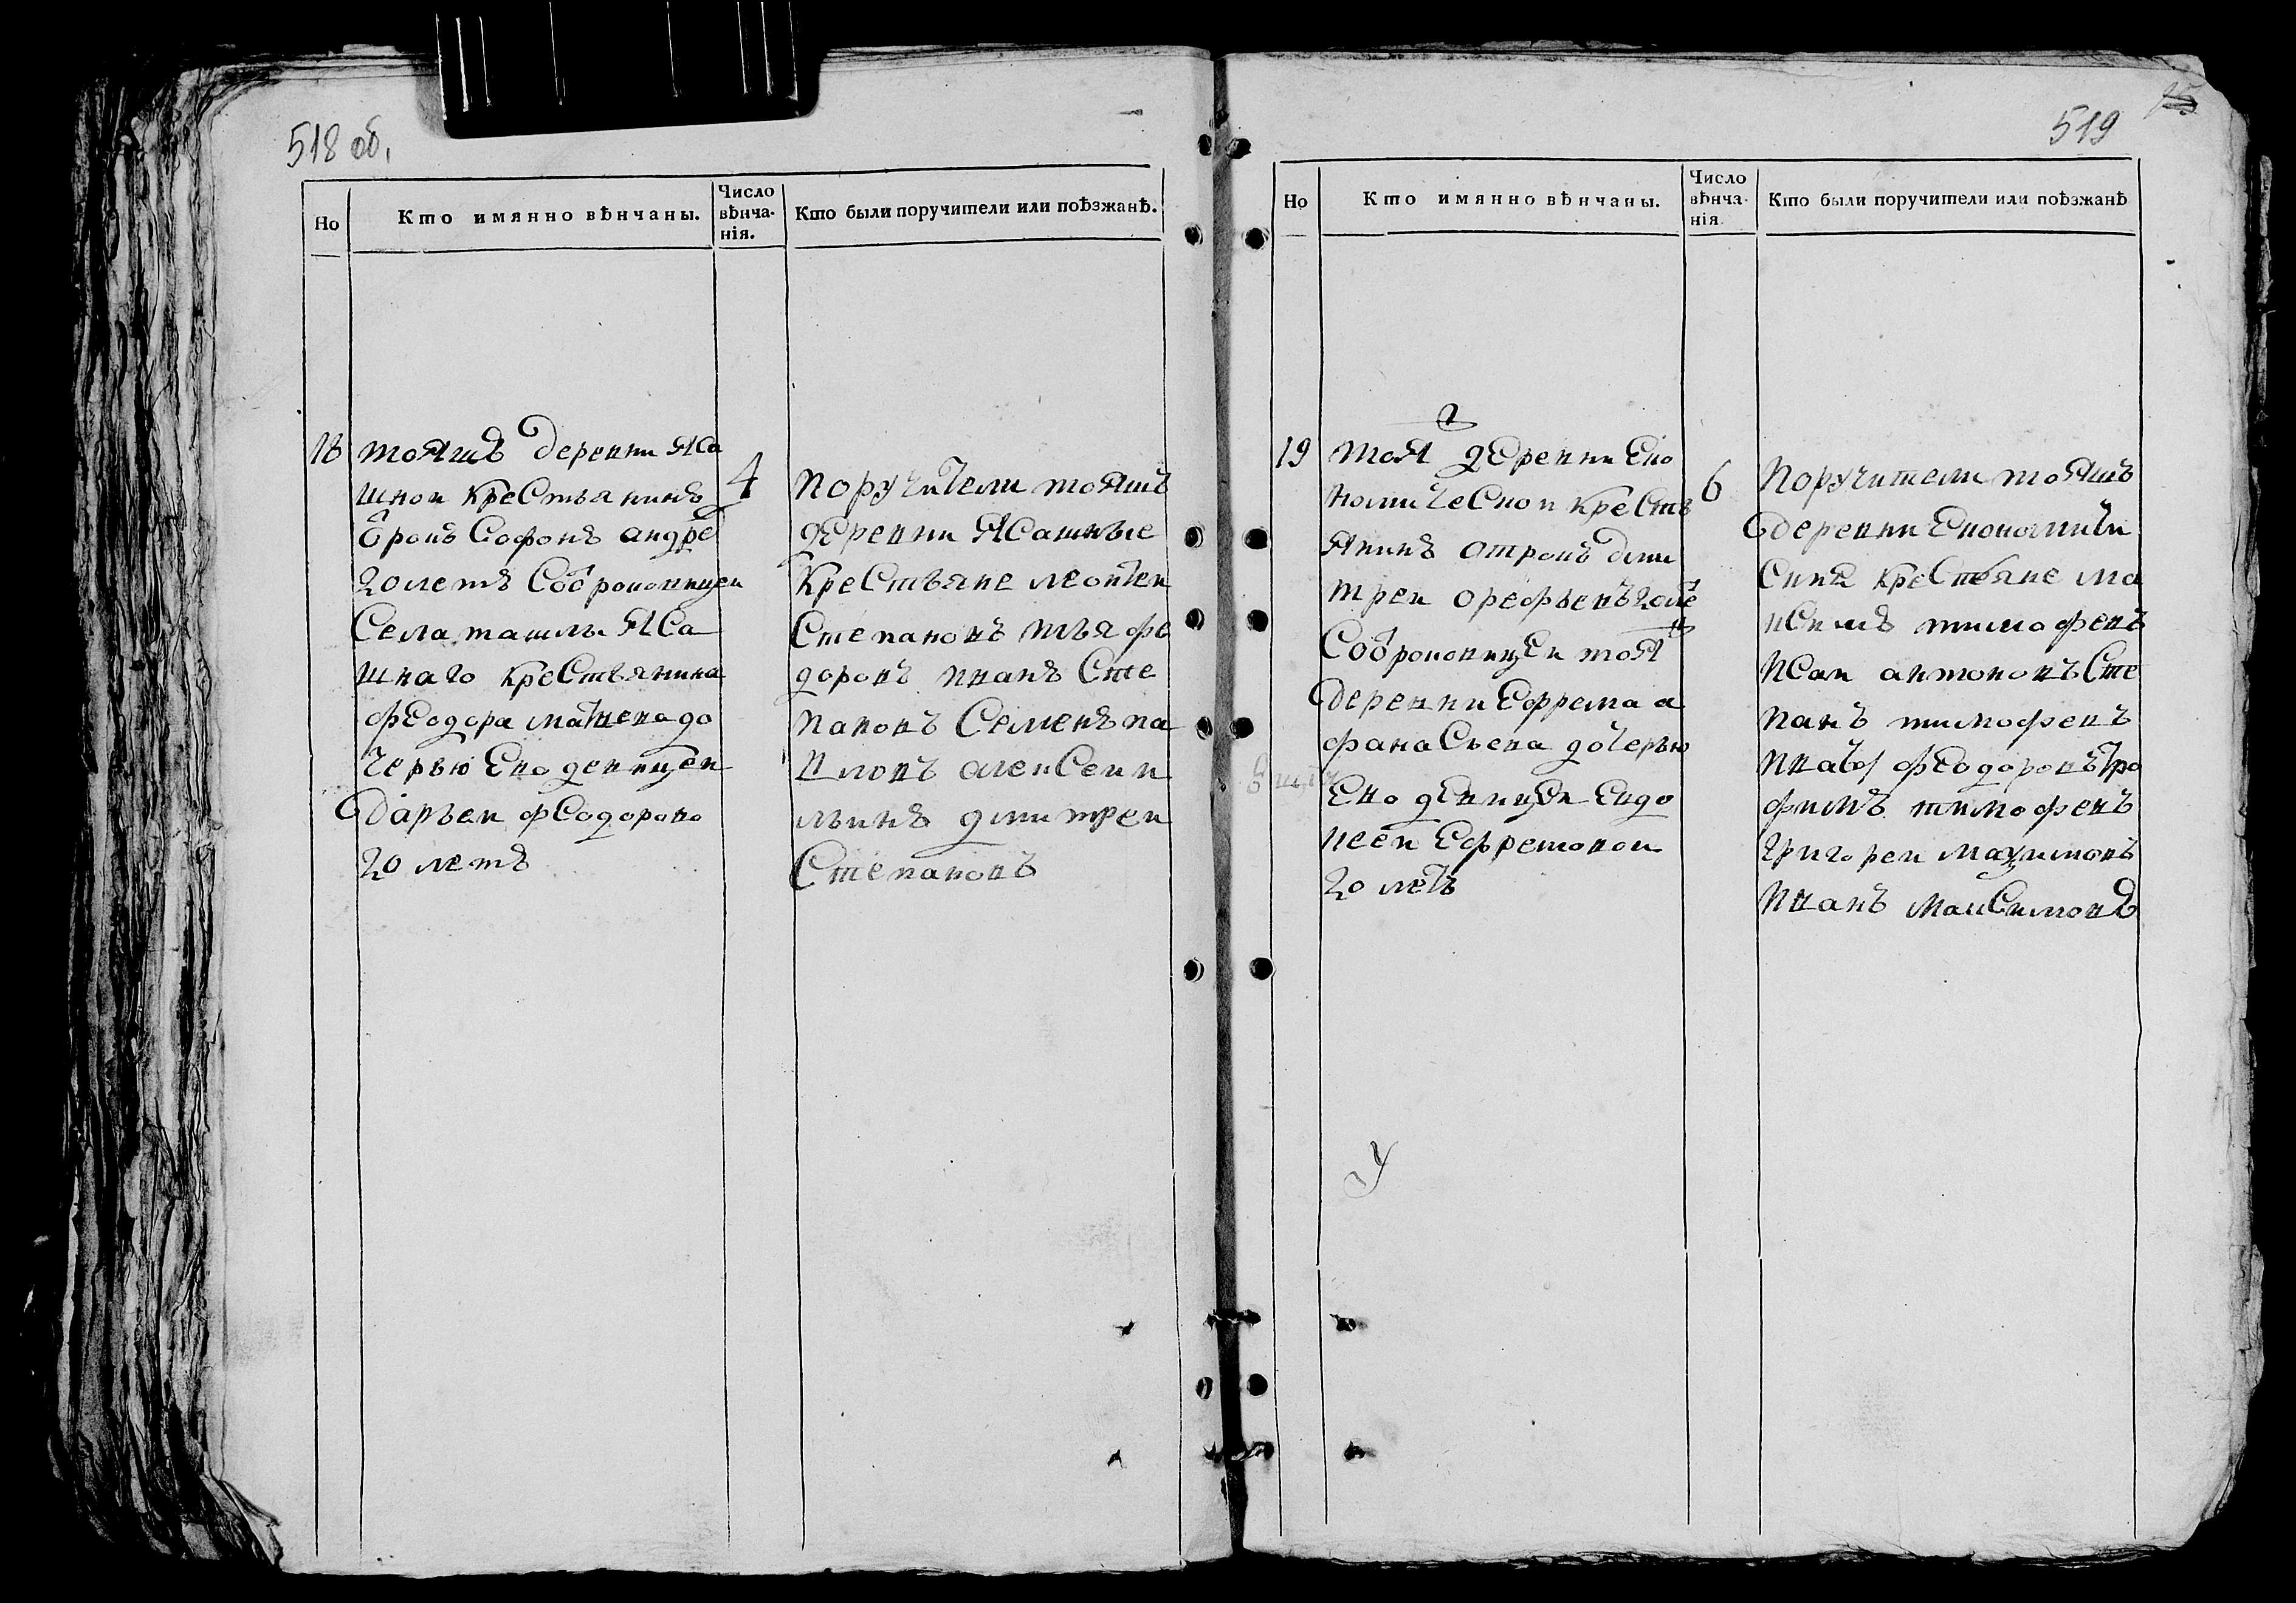 518 об.
Но
Кто имянно вѣнчаны.
Число вѣнча-нія.
Кто были поручители или поѣзжанѣ.
18
тояжъ деревни яса
шнои крестьянинъ
отрокъ Софонъ андре
20 летъ Соотроковицеи
Села ташлы яса
шнаго крестьянина
феодора матвева до
черью Ево девицеи
дарьеи феодорово
20 летъ
4
поручители тояжъ
деревни ясашные
крестьяне леонтеи
Степановъ илья фе
доровъ иванъ Сте
пановъ Семенъ па
вловъ алексеи и
льинъ дмитреи
Степановъ
519
Но
Кто имянно вѣнчаны.
Число вѣнча-нія
Кто были поручители или поѣзжанѣ
19
тоя деревни Еко
номическои крестъ
янинъ отрокъ дми
треи орефьевъ 20 ле
Соотроковицеи тояж
деревни Ефрема а
фанасьева дочерью
Ево девицеи Евдо
кееи Ефремовои
20 летъ
6
Поручители тояжъ
деревни Економиче
Ския крестьяне ма
ксимъ тимофевъ
исаи антоновъ Сте
панъ тимофевъ
феодоровъ тро
фимъ тимофевъ
григореи
иванъ максимовъ